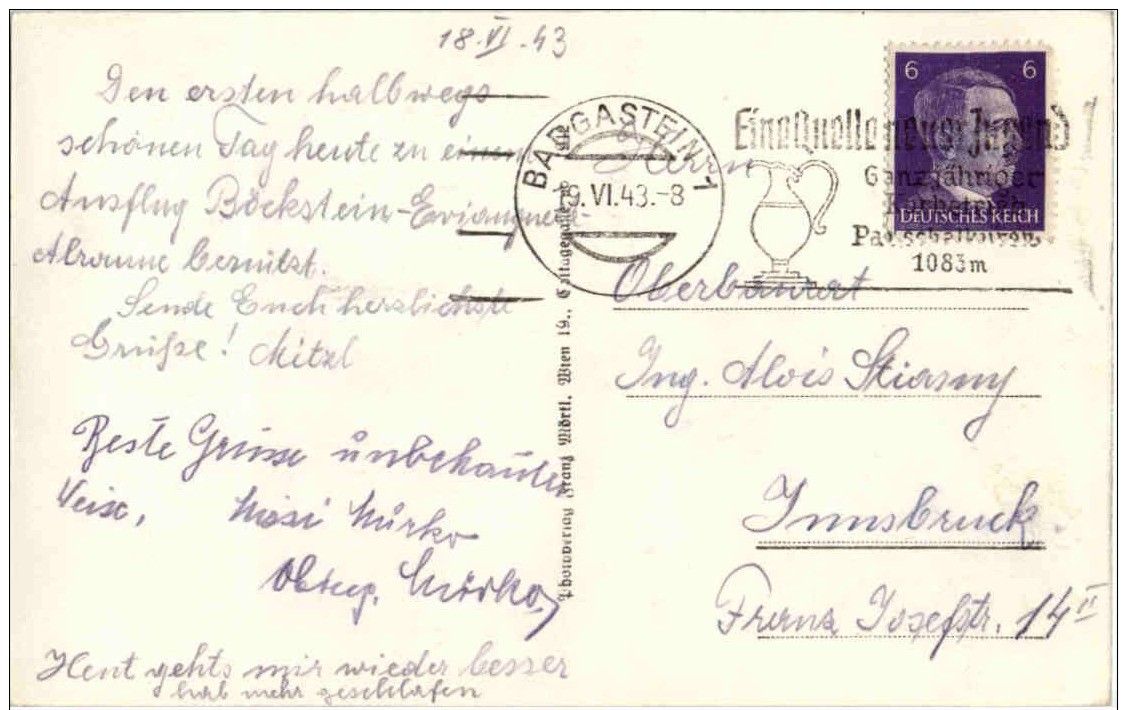 18.VI.43
Den ersten halbwegs
schönen Tag heute zu einem
Ausflug Böckstein-
benützt.
Sende Euch herzlichste
Grüße! Mitzl
Beste Grüsse unbekannter
Weise, Mirko
Mirko
Heut gehts mir wieder besser
hab mehr geschlafen
Photoverlag Franz Mörtl, Wien 19.,
BADGASTEIN 1
19.VI.43.-8
Eine Quelle neuer Jugend
Ganzjähriger
Kurbetrieb
1083m
6 6
DEUTSCHES REICH
Herrn
Oberbaurat
Ing. Alois Stiasny
Innsbruck.
Franz Josefstr. 14 II